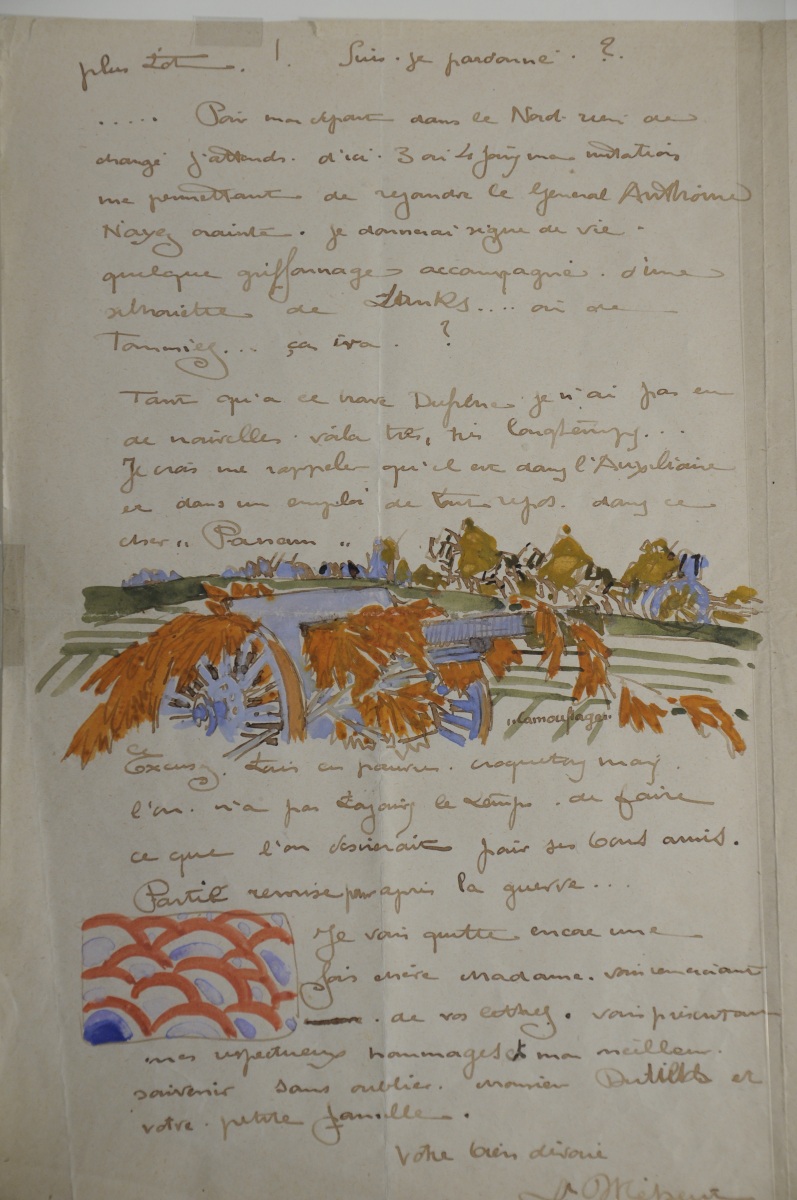 plus tôt. !. Suis-je pardonné. ?.
..... Pour mon départ dans le Nord rien de
changé j'attends. d'ici. 3 ou 4 jours ma mutation
me permettant de rejoindre le Général Anthoine
N'ayez crainte. je donnerai signe de vie.
quelque griffonnage accompagné. d'une
silhouette de Tanks.... ou de
Tommies... ça ira. ?
Tant qu'a ce brave Dufrène je n'ai pas eu
de nouvelles. voila très, très longtemps...
Je crois me rappeler qu'il est dans l'Auxiliaire
et dans un emploi de tout repos. dans ce
cher „ Paname „
„Camouflage„
Excusez. tous ces pauvres. croquetons mais
l'on. n'a pas toujours le temps. de faire
ce que l'on désirerait pour ses bons amis.
Partie remise pour après la guerre...
Je vous quitte encore une
fois chère Madame. vous remerciant
de vos lettres. vous présentant
mes respectueux hommages et mon meilleur.
souvenir sans oublier. Monsieur et
votre. petite famille.
Votre bien dévoué